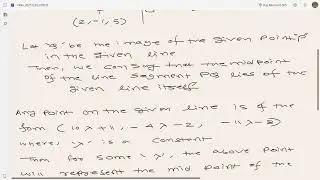 (2,-1,5)
Let 'Q' be the image of the given point 'P'
in the given line
Then, we can say that the midpoint
of the line segment PQ lies of the
given line itself
Any point on the given line is of the
form (10λ+11, -4λ-2, -11λ-8)
where, 'λ' is a constant
Then for some 'λ', the above point
will represent the mid point of the